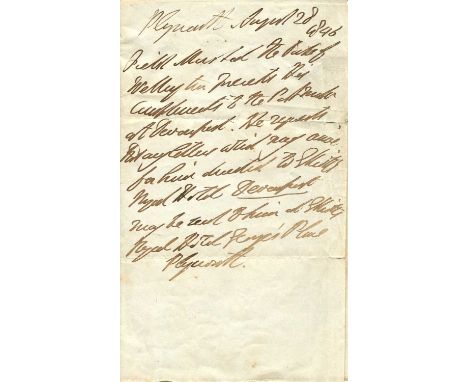 Plymouth. August 28
1846
Field Marshal the Duke of
Wellington presents his
Compliments to the Post Master
at Devonport. He requests
that any letters which may arrive
for him directed to
Royal Hotel Devonport
may be sent to him at
Royal Hotel George's Place
Plymouth.